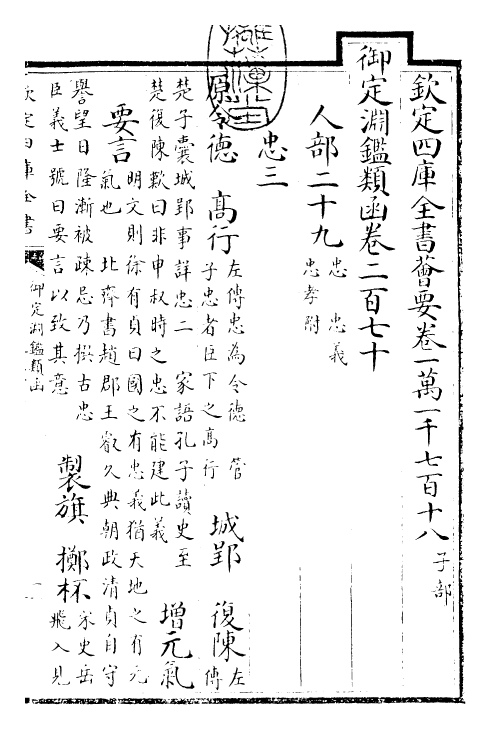 欽定四庫全書薈要卷一萬一千七百十八 子部
御定淵鑑類函卷二百七十
人部二十九 忠 忠義
忠孝附
忠三
原令德 高行 左傳忠為令德 管
子忠者臣下之高行 城郢 復陳 左
傳
楚子囊城郢事詳忠二 家語孔子讀史至
楚復陳歎曰非申叔時之忠不能建此義 增元氣
要言 明文則徐有貞曰國之有忠義猶天地之有元
氣也 北齊書趙郡王叡久典朝政清貞自守
譽望日隆漸被疎忌乃撰古忠
臣義士號曰要言以致其意 製旗 擲杯 宋史岳
飛入見
欽定四庫全書
御定淵鑑類函